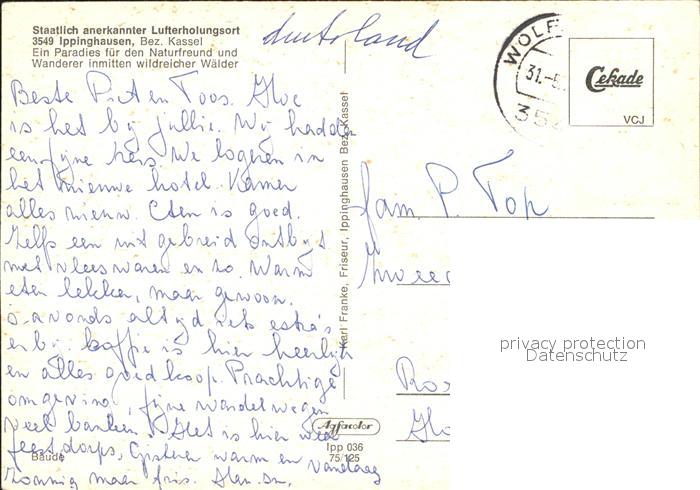 Staatlich anerkannter Lufterholungsort
3549 Ippinghausen, Bez. Kassel
Ein Paradies für den Naturfreund und
Wanderer inmitten wildreicher Wälder
Beste Piet en Toos. Hoe
is het bij jullie. Wij hadden
een fijne reis. We logeren in
het nieuwe hotel. Kamer
alles nieuw. Eten is goed.
Zelfs een uitgebreid ontbijt
met vleeswaren en zo. Warm
eten lekker, maar gewoon.
s-avonds altijd iets extra's
erbij. koffie is hier heerlijk
en alles goedkoop. Prachtige
omgeving, fijne wandelwegen
veel banken. Het is hier
feest dorps, Gisteren warm en vandaag
zonnig maar fris.
Baude
Karl Franke, Friseur, Ippinghausen Bez. Kassel
Agfacolor
Ipp 036
75/125
WOLF
31.-5.
35
Cekade
VCJ
fam. P. Top
privacy protection
Datenschutz